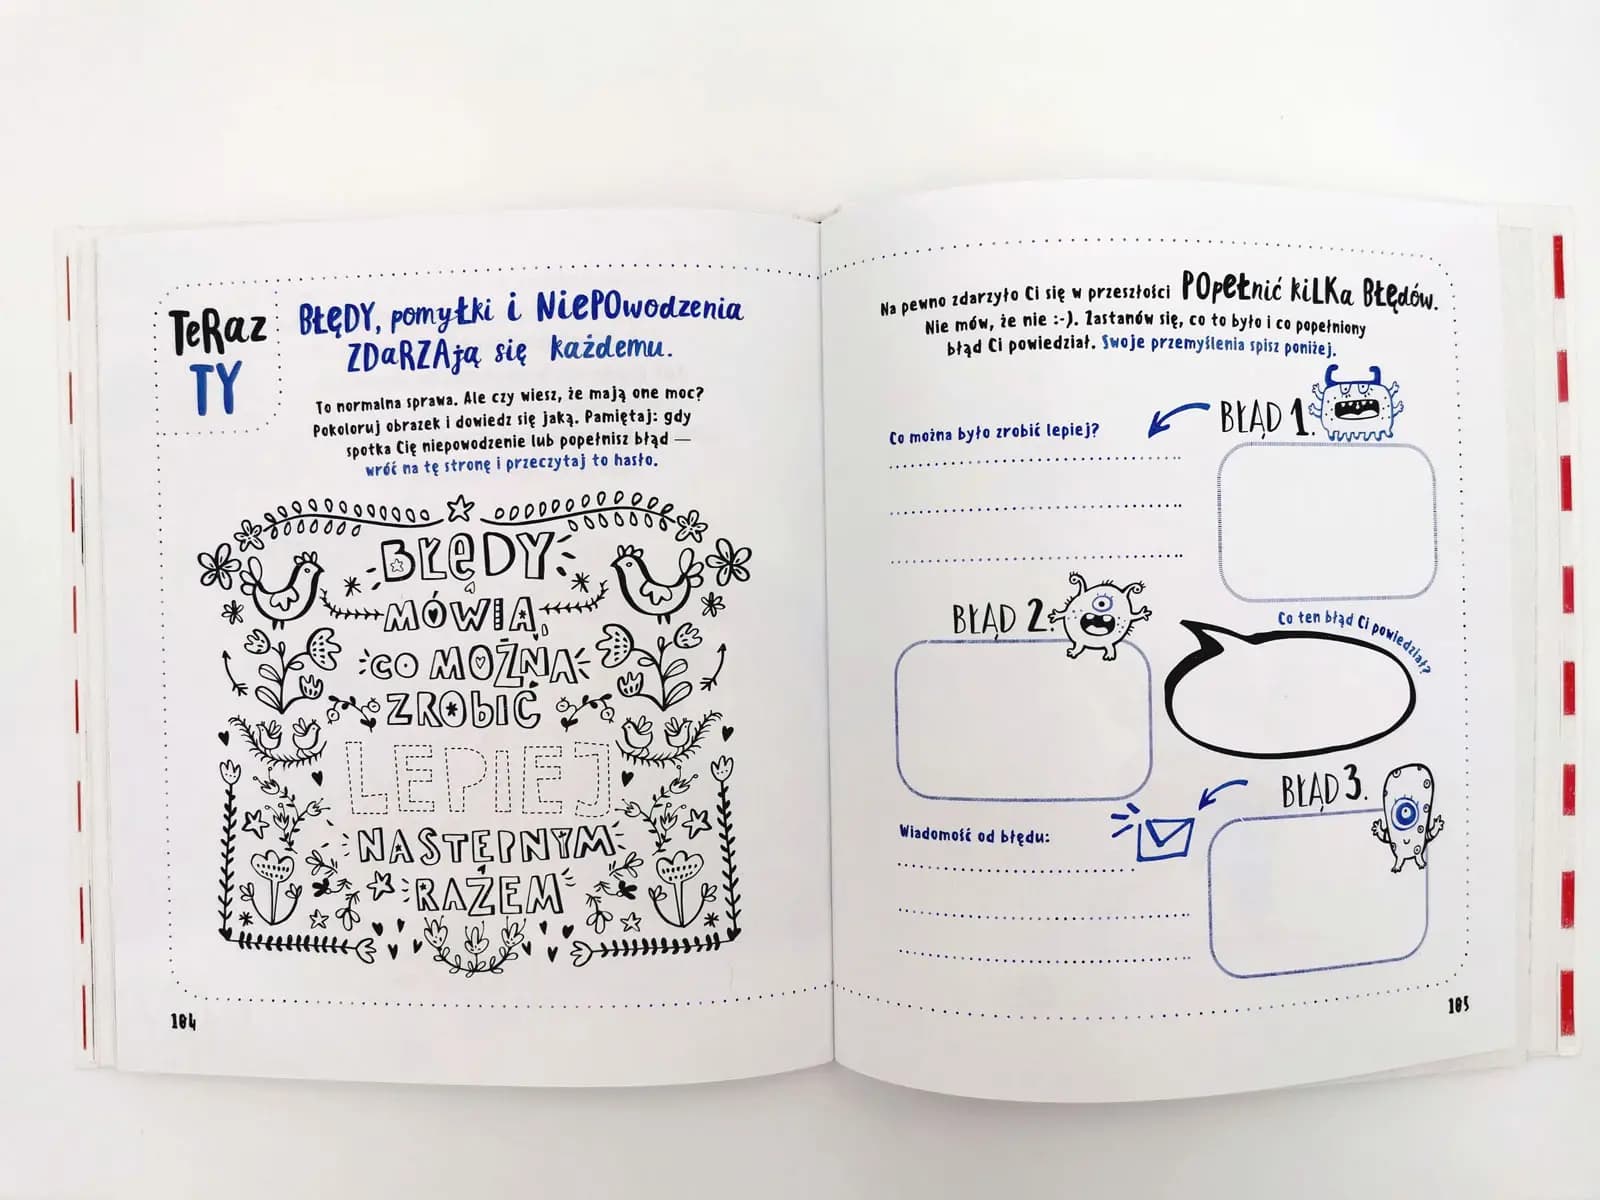 TeRaz
TY
BŁĘDY, pomyŁki i NiePOwodzenia
ZDaRZAją się każdemu.
To normalna sprawa. Ale czy wiesz, że mają one moc?
Pokoloruj obrazek i dowiedz się jaką. Pamiętaj: gdy
spotka Cię niepowodzenie lub popełnisz błąd —
wróć na tę stronę i przeczytaj to hasło.
BŁĘDY
MÓWIĄ,
CO MOŻNA
ZROBIĆ
LEPIEJ
NASTĘPNYM
RAZEM
184
Na pewno zdarzyło Ci się w przeszłości POpeŁnić kiLKa BŁędów.
Nie mów, że nie :-). Zastanów się, co to było i co popełniony
błąd Ci powiedział. Swoje przemyślenia spisz poniżej.
BŁĄD 1.
Co można było zrobić lepiej?
BŁĄD 2.
Co ten błąd Ci powiedział?
BŁĄD 3.
Wiadomość od błędu:
185